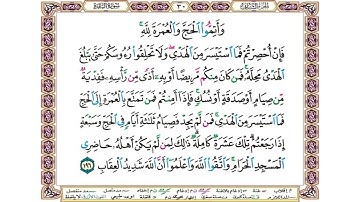 وَأَتِمُّوا۟ ٱلْحَجَّ وَٱلْعُمْرَةَ لِلَّهِ
فَإِنْ أُحْصِرْتُمْ فَمَا ٱسْتَيْسَرَ مِنَ ٱلْهَدْىِ وَلَا تَحْلِقُوا۟ رُءُوسَكُمْ حَتَّىٰ يَبْلُغَ
ٱلْهَدْىُ مَحِلَّهُۥ فَمَن كَانَ مِنكُم مَّرِيضًا أَوْ بِهِۦٓ أَذًى مِّن رَّأْسِهِۦ فَفِدْيَةٌ
مِّن صِيَامٍ أَوْ صَدَقَةٍ أَوْ نُسُكٍ فَإِذَآ أَمِنتُمْ فَمَن تَمَتَّعَ بِٱلْعُمْرَةِ إِلَى ٱلْحَجِّ
فَمَا ٱسْتَيْسَرَ مِنَ ٱلْهَدْىِ فَمَن لَّمْ يَجِدْ فَصِيَامُ ثَلَٰثَةِ أَيَّامٍ فِى ٱلْحَجِّ وَسَبْعَةٍ
إِذَا رَجَعْتُمْ تِلْكَ عَشَرَةٌ كَامِلَةٌ ذَٰلِكَ لِمَن لَّمْ يَكُنْ أَهْلُهُۥ حَاضِرِى
ٱلْمَسْجِدِ ٱلْحَرَامِ وَٱتَّقُوا۟ ٱللَّهَ وَٱعْلَمُوٓا۟ أَنَّ ٱللَّهَ شَدِيدُ ٱلْعِقَابِ ١٩٦